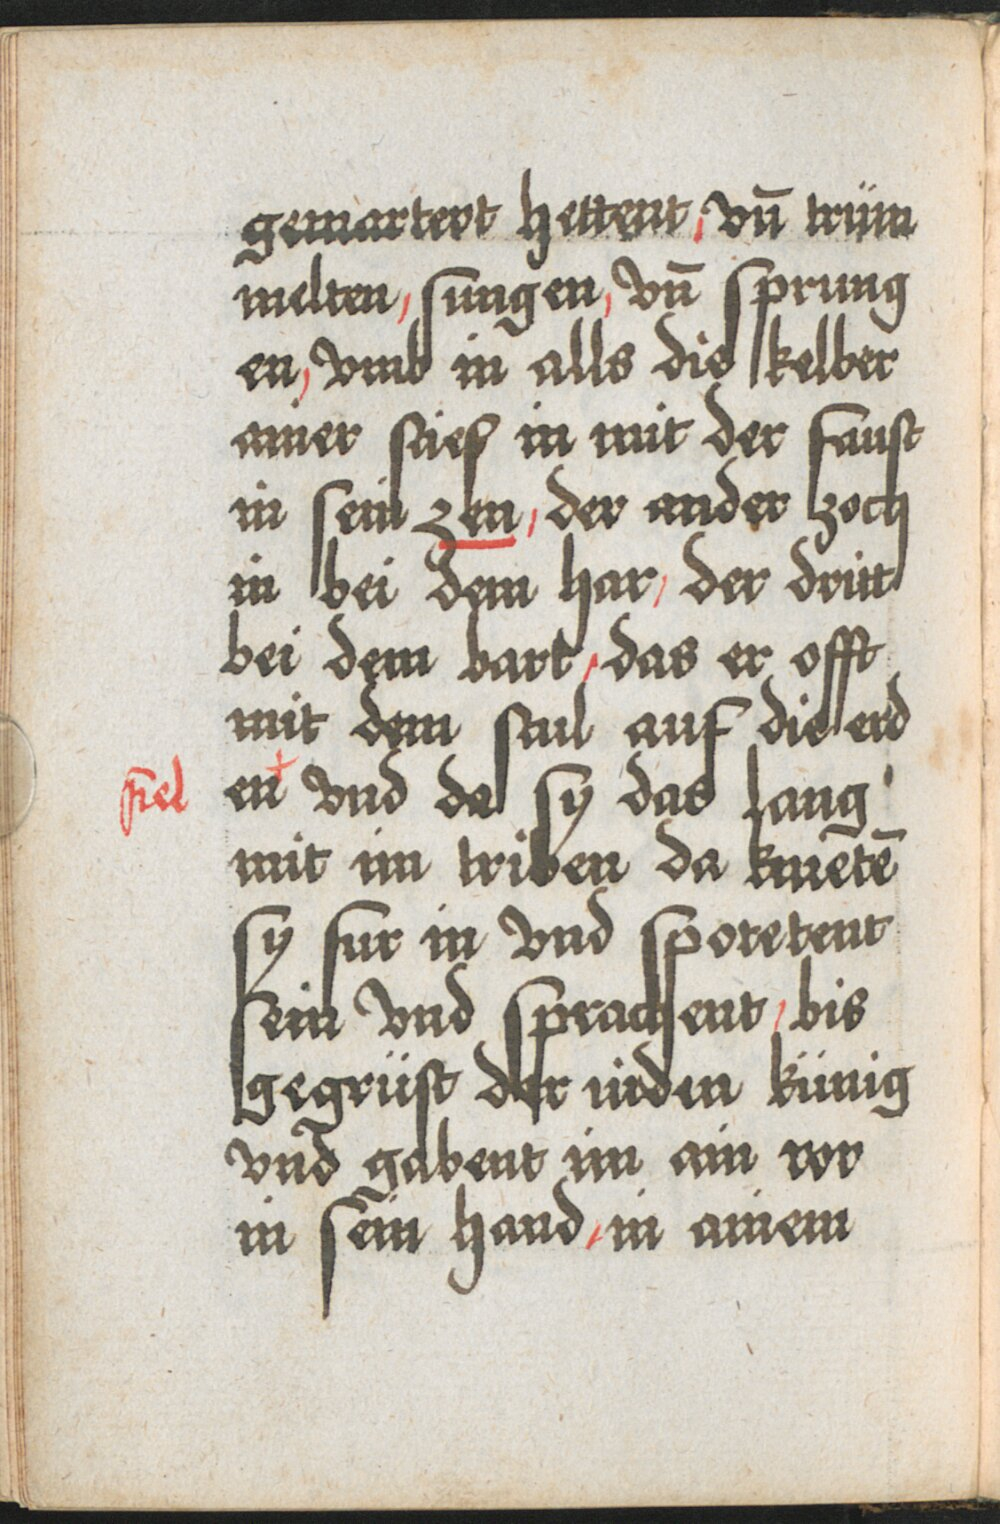 gemartert hettent / vn̄ trüm
melten / sungen / vn̄ sprung
en / vmb in alls die kelber
ainer sties in mit der faust
in sein zen / der ander zoch
in bei dem har / der dritt
bei dem bart / das er offt
mit dem stul auf die erd
fiel en + vnd da sy das lang
mit im triben da knietē
sy fur in vnd spotetent
sein vnd sprachent / bis
gegrüst der iuden künig
vnd gabent im ain ror
in sein hand / in ainem